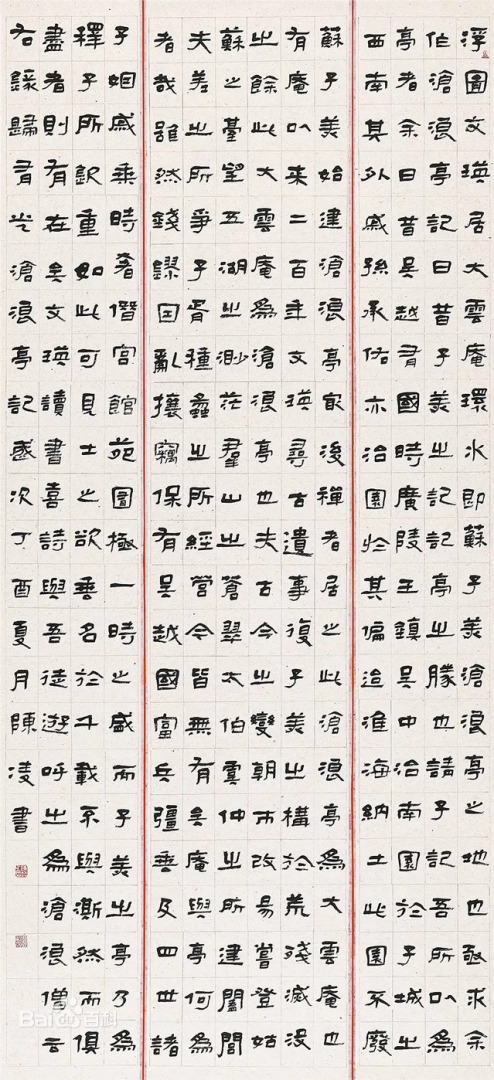 浮圖文瑛居大雲庵環水即蘇子美滄浪亭之地也亟求余
作滄浪亭記曰昔子美之記記亭之勝也請子記吾所以為
亭者余曰昔吳越有國時廣陵王鎮吳中治南園於子城之
西南其外戚孫承佑亦治園於其偏迨淮海納土此園不廢
蘇子美始建滄浪亭最後禪者居之此滄浪亭為大雲庵也
有庵以來二百年文瑛尋古遺事復子美之構於荒殘滅沒
之餘此大雲庵為滄浪亭也夫古今之變朝市改易嘗登姑
蘇之臺望五湖之渺茫羣山之蒼翠太伯虞仲之所建闔閭
夫差之所爭子胥種蠡之所經營今皆無有矣庵與亭何為
者哉雖然錢鏐因亂攘竊保有吳越國富兵彊垂及四世諸
子姻戚乘時奢僭宮館苑囿極一時之盛而子美之亭乃為
釋子所欽重如此可見士之欲垂名於千載不與澌然而俱
盡者則有在矣文瑛讀書喜詩與吾徒遊呼之為滄浪僧云
右錄歸有光滄浪亭記歲次丁酉夏月陳淩書
Bai百科